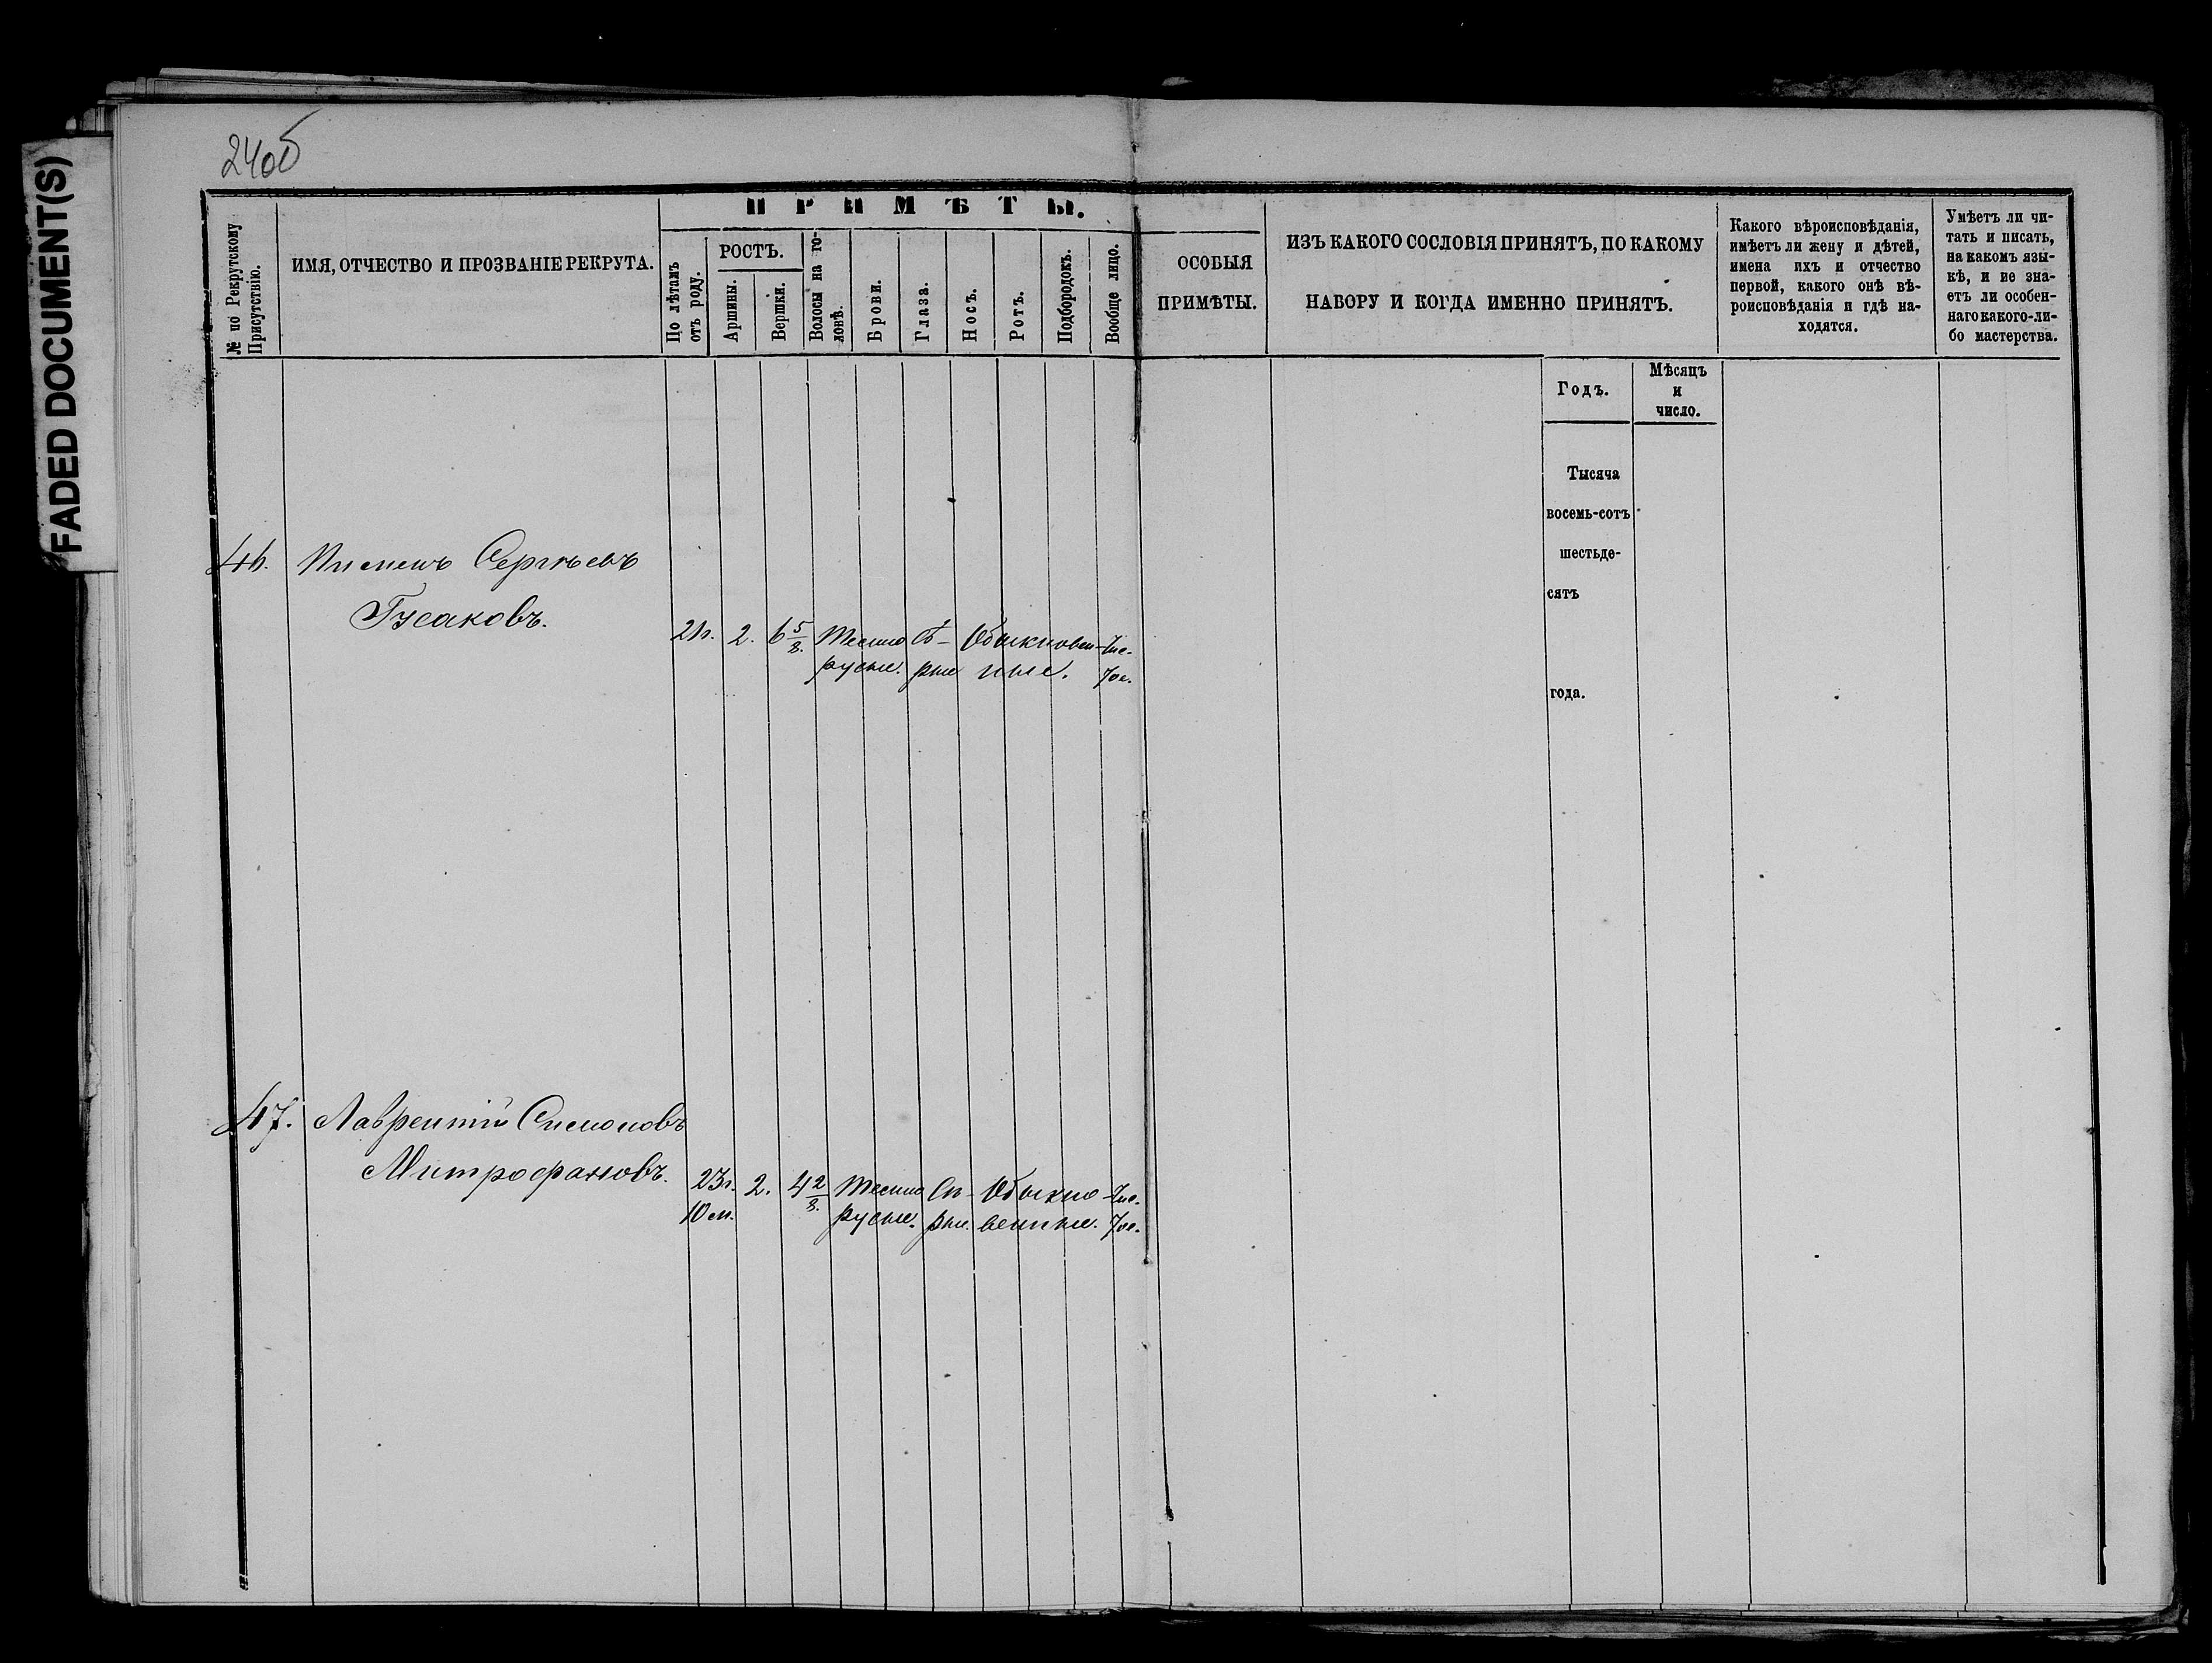 FADED DOCUMENT(S)
24об
ПРИМѢТЫ.
№ по Рекрутскому
Присутствію.
ИМЯ, ОТЧЕСТВО И ПРОЗВАНІЕ РЕКРУТА.
По лѣтамъ
отъ роду.
РОСТЪ.
Аршины.
Вершки.
Волосы на го-
ловѣ.
Брови.
Глаза.
Носъ.
Ротъ.
Подбородокъ.
Вообще лицо.
ОСОБЫЯ
ПРИМѢТЫ.
ИЗЪ КАКОГО СОСЛОВІЯ ПРИНЯТЪ, ПО КАКОМУ
НАБОРУ И КОГДА ИМЕННО ПРИНЯТЪ.
Какого вѣроисповѣданія,
имѣетъ ли жену и дѣтей,
имена ихъ и отчество
первой, какого онѣ вѣ-
роисповѣданія и гдѣ на-
ходятся.
Умѣетъ ли чи-
тать и писать,
на какомъ язы-
кѣ, и не зна-
етъ ли особен-
наго какого-ли-
бо мастерства.
Годъ.
Мѣсяцъ
и
число.
Тысяча
восемь-сотъ
шестьде-
сятъ
года.
46. Пименъ Сергѣевъ
Гусаковъ.
21г. 2. 6 5/8. Темно Сѣ- Обыкновен- Чис-
русые. рые ные. тое.
47. Лаврентій Симоновъ
Митрофановъ.
23г. 2. 4 2/8. Темно Сѣ- Обыкно Чис-
10 м. русые. рые. венные. тое.